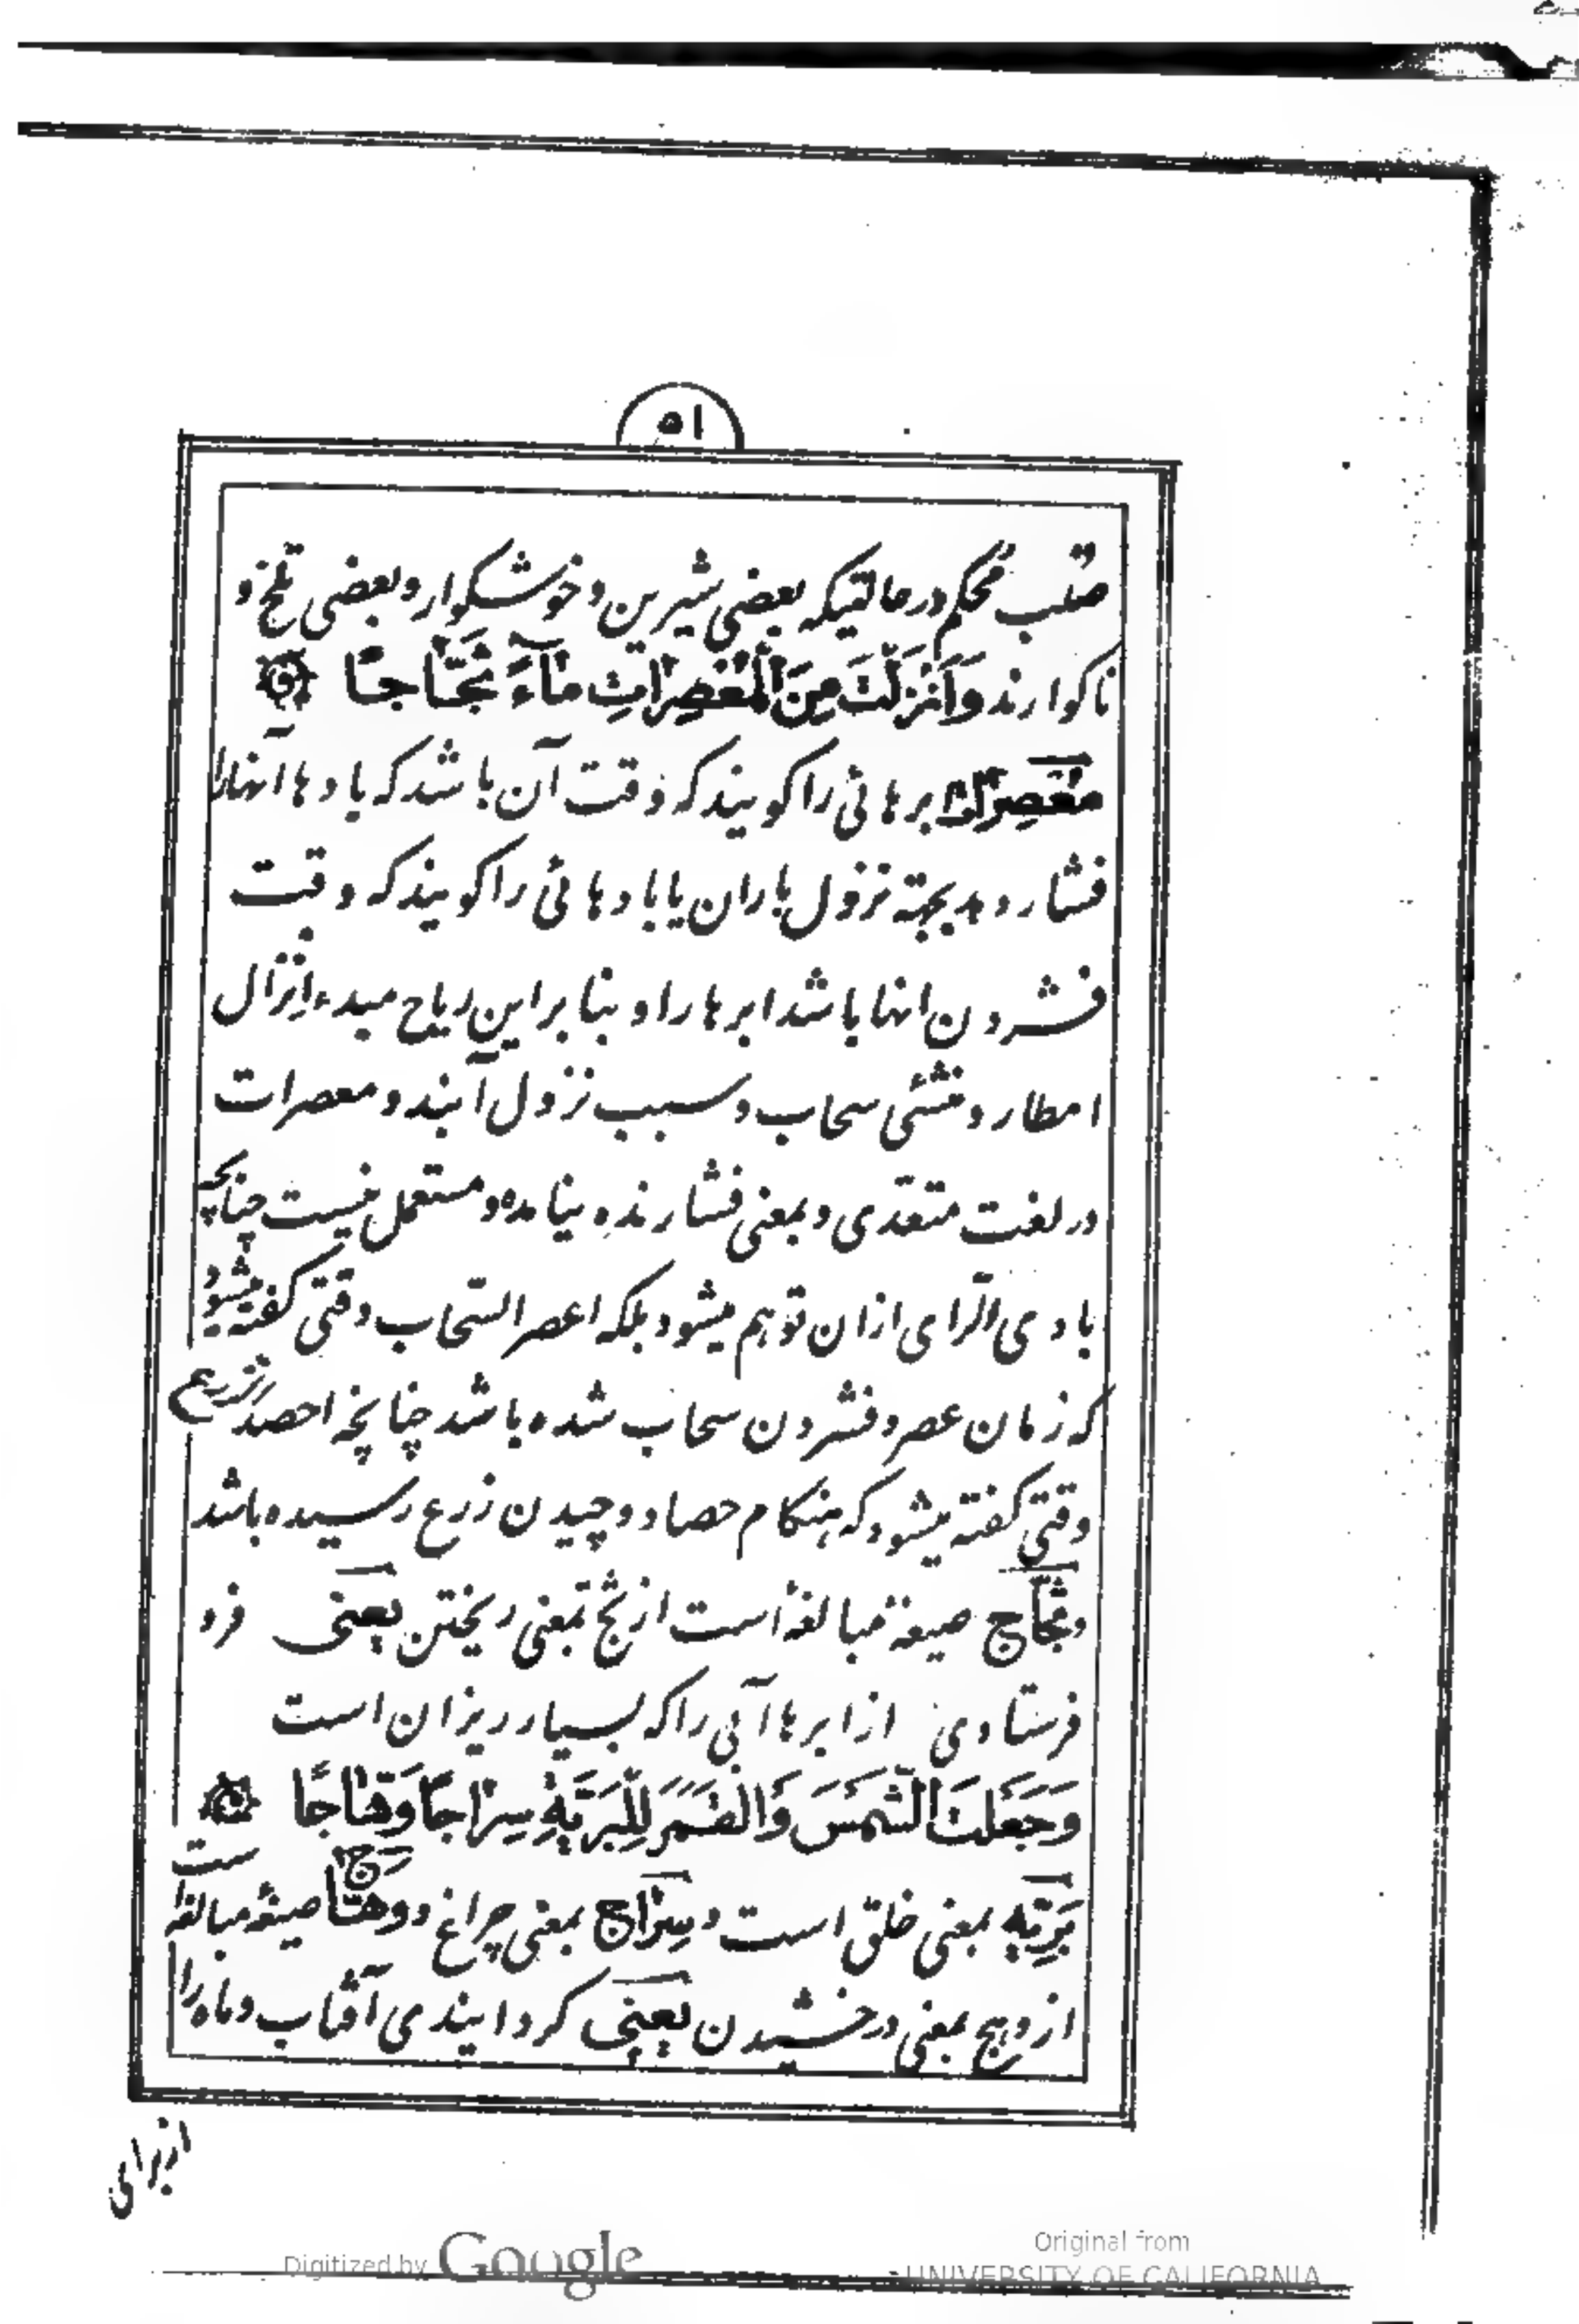 ۵۱
صلب محکم در حالتیکه بعضی شیرین و خوشکوار و بعضی تلخ و
ناکوارند وَاَنْزَلْتَ مِنَ الْمُعْصِرَاتِ مَآءً ثَجَّاجًا
مُعْصِرَات ابرهائی را کویند که وقت آن باشد که بادها آنهارا
فشار دهد بجهة نزول باران یا بادهائی را کویند که وقت
فشردن انها باشد ابرها را و بنا براین ریاح مبدء انزال
امطار و منشئی سحاب و سبب نزول آبند و معصرات
در لغت متعدّی و بمعنی فشارنده نیامده و مستعمل نیست چنانچه
بادی الرّای ازان توهم میشود بلکه اعصر السّحاب وقتی کفته میشود
که زمان عصر و فشردن سحاب شده باشد چنانچه احصد الزرع
وقتی کفته میشود که هنکام حصاد و چیدن زرع رسیده باشد
و ثجّاج صیغهٔ مبالغه است از ثجّ بمعنی ریختن یعنی فرو
فرستادی از ابرها آبی را که بسیار ریزان است
وَجَعَلْتَ الشَّمْسَ وَالْقَمَرَ لِلْبَرِیَّةِ سِرَاجًا وَهَّاجًا
بَرِیَّه بمعنی خلق است و سِرَاج بمعنی چراغ و وهّاج صیغهٔ مبالغه است
از وهج بمعنی درخشیدن یعنی کردانیدی آفتاب و ماه را
از برای
Digitized by Google
Original from
UNIVERSITY OF CALIFORNIA